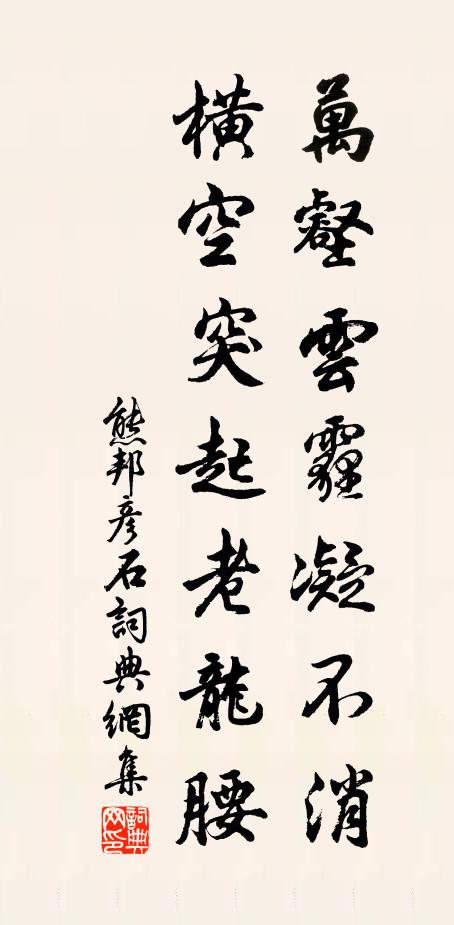 萬壑雲霾凝不消
橫空突起老龍腰
熊邦彥石詞典網集
詞典網印